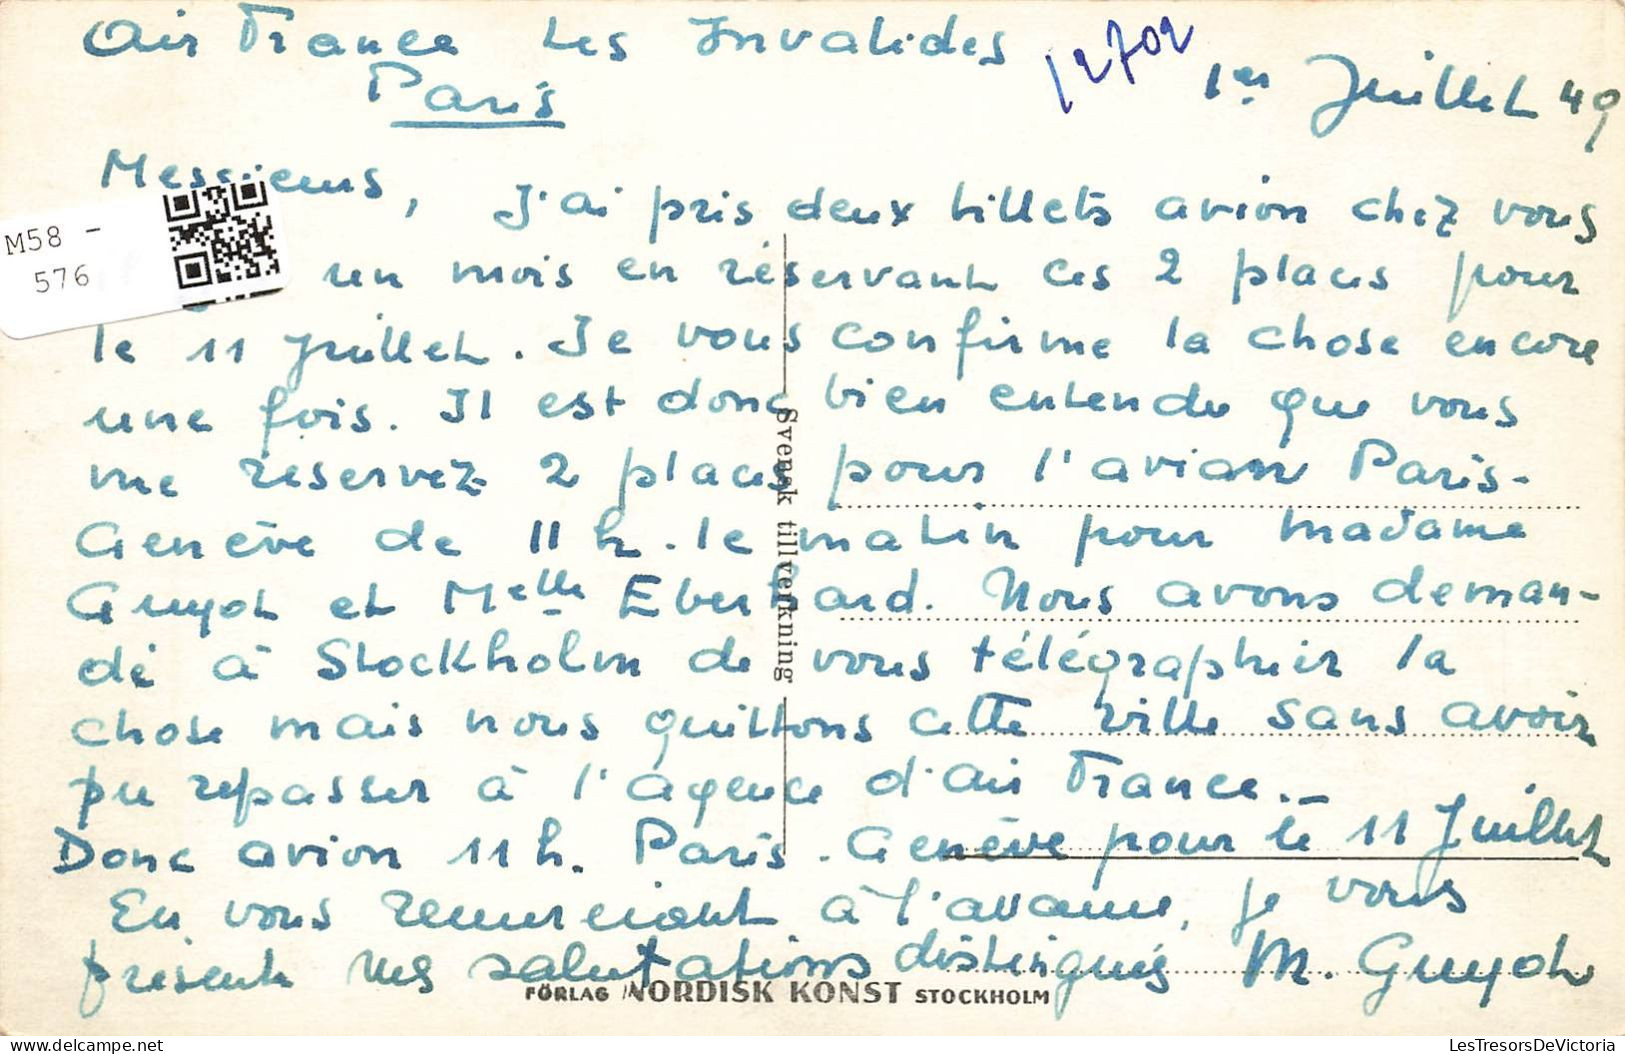 Air France Les Invalides
Paris
12702
1er Juillet 49
Messieurs,
J'ai pris deux billets avion chez vous
M58 -
576
un mois en réservant ces 2 places pour
le 11 Juillet. Je vous confirme la chose encore
une fois. Il est donc bien entendu que vous
me réservez 2 places pour l'avion Paris-
Genève de 11 h. le matin pour Madame
Guyot et Melle Eberhard. Nous avons deman-
dé à Stockholm de vous télégraphier la
chose mais nous quittons cette ville sans avoir
pu repasser à l'agence d'Air France.-
Donc avion 11 h. Paris-Genève pour le 11 Juillet
En vous remerciant à l'avance, je vous
présente mes salutations distingués M. Guyot
Svensk tillverkning
FÖRLAG NORDISK KONST STOCKHOLM
LesTresorsDeVictoria